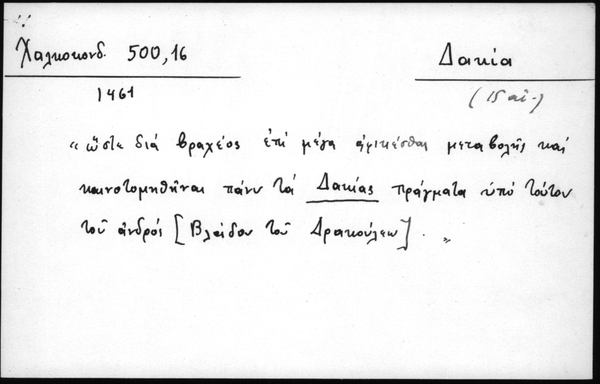 Χαλκοκονδ. 500,16
Δακία
1461
(15 αἰ.)
« ὥστε διά βραχέος ἐπί μέγα ἀφικέσθαι μεταβολῆς καί
καινοτομηθῆναι πάνυ τά Δακίας πράγματα ὑπό τούτου
τοῦ ἀνδρός [Βλάδου τοῦ Δρακούλεω] . »